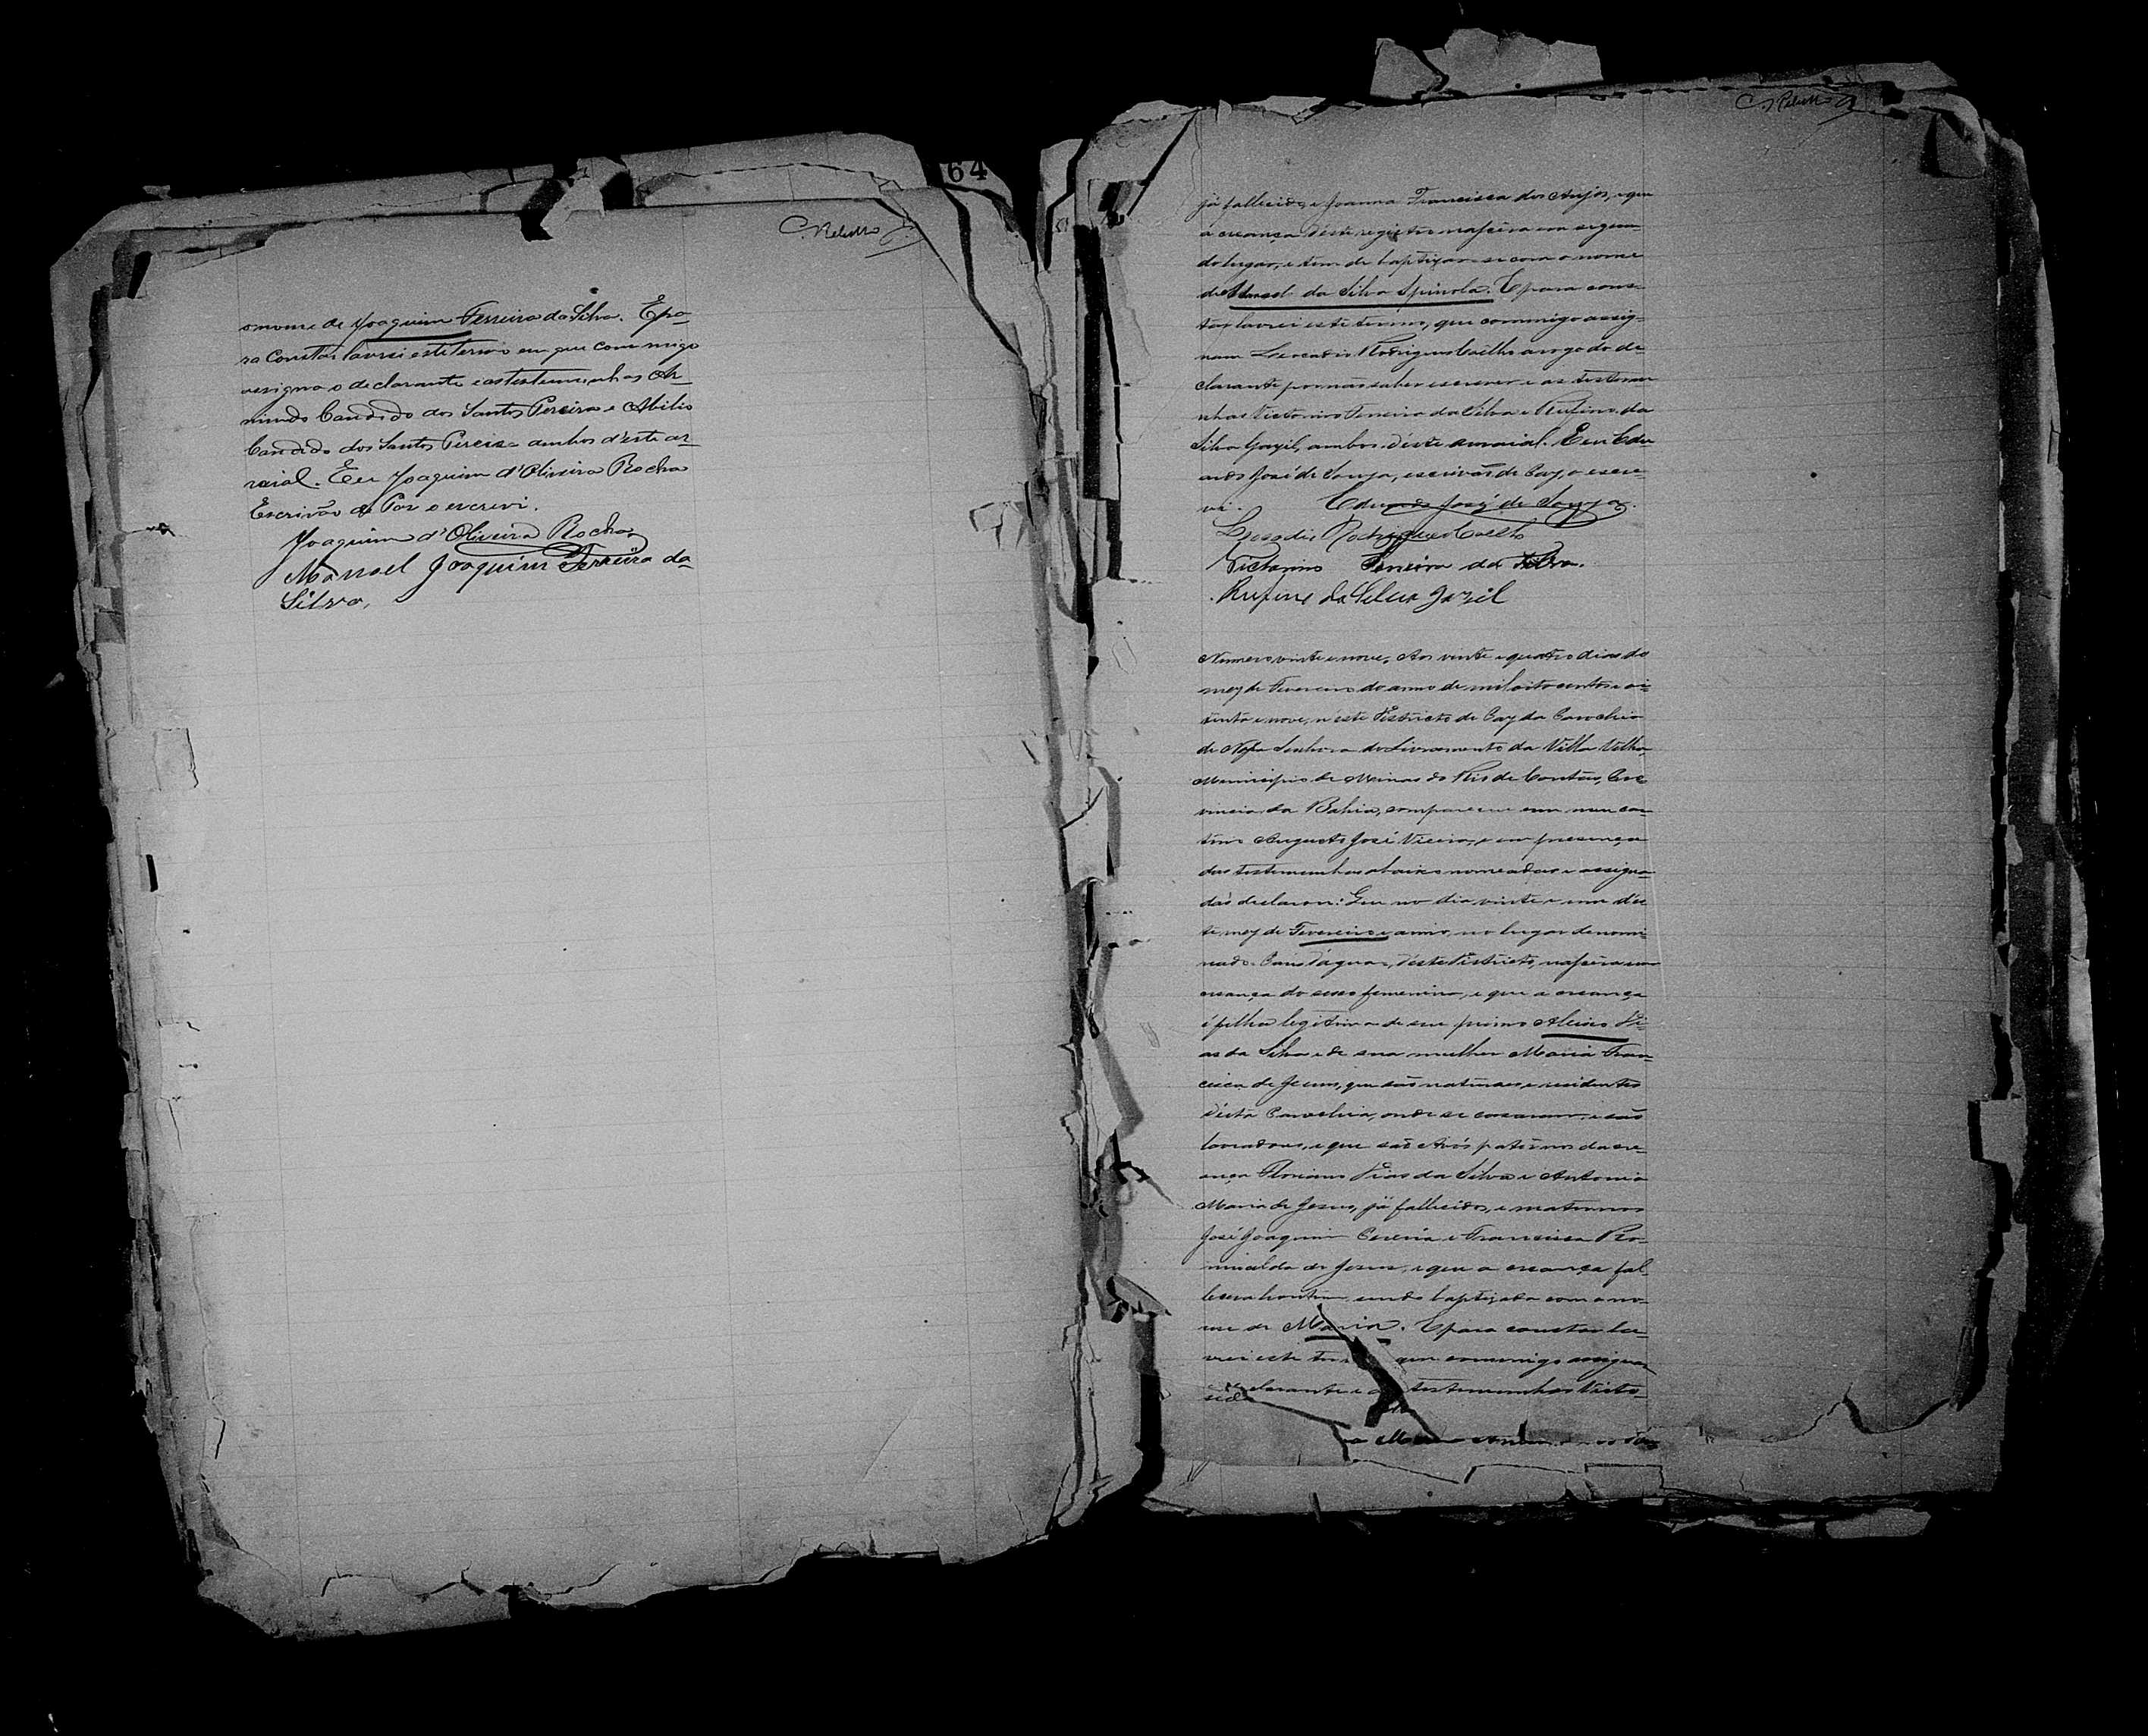 64
C. Rebello
o nome de Joaquim Ferreira da Silva. E pa-
ra constar lavrei este termo em que commigo
assigna o declarante e as testemunhas Ar-
mundo Candido dos Santos Pereira e Abilio
Candido dos Santos Pereira ambos d'este ar-
raial. Eu Joaquim d'Oliveira Rocha
Escrivão de Paz o escrevi.
Joaquim d'Oliveira Rocha
Manoel Joaquim Ferreira da
Silva,
C. Rebello
já fallecidos, e Joanna Francisca dos Anjos, e que
a creança d'este registro nascêra em segun-
do lugar, e tem de baptizar-se com o nome
de Manoel da Silva Spinola. E para cons-
tar lavrei este termo, que commigo assig-
nam Leocadio Rodrigues Coelho a rogo do de-
clarante por não saber escrever e as testemu-
nhas Victorino Ferreira da Silva e Rufino da
Silva Gazil, ambos d'este arraial. E eu Edu-
ardo José de Souza, escrivão de Paz, o escre-
vi. Eduardo José de Souza.
Leocadio Rodrigues Coelho
Victorino Ferreira da Silva.
Rufino da Silva Gazil
Numero vinte e nove. Aos vinte e quatro dias do
mez de Fevereiro do anno de mil oito centos e oi-
tenta e nove, n'este Districto de Paz da Parochia
de Nossa Senhora do Livramento da Villa Velha,
Municipio de Minas do Rio de Contas, Pro-
vincia da Bahia, compareceu em meu car-
torio Augusto José Vieira, e em presença
das testemunhas abaixo nomeadas e assigna-
das declarou: Que no dia vinte e um d'es-
te mez de Fevereiro e anno, no lugar denomi-
nado Páu d'agua, d'este Districto, nascêra uma
creança do sexo femenino, e que a creança
é filha legitima de seu primo Aleixo Di-
as da Silva e de sua mulher Maria Fran-
cisca de Jesus, que são naturaes e residentes
d'esta Parochia, onde se casaram, e são
lavradores, e que são Avós paternos da cre-
ança Floriano Dias da Silva e Antonia
Maria de Jesus, já fallecidos, e maternos
José Joaquim Pereira e Francisca Ro-
mualda de Jesus, e que a creança fal-
lecera hontem, sendo baptizada com o no-
me de Maria. E para constar la-
vrei este que commigo assigna
declarante e testemunhas Victo-